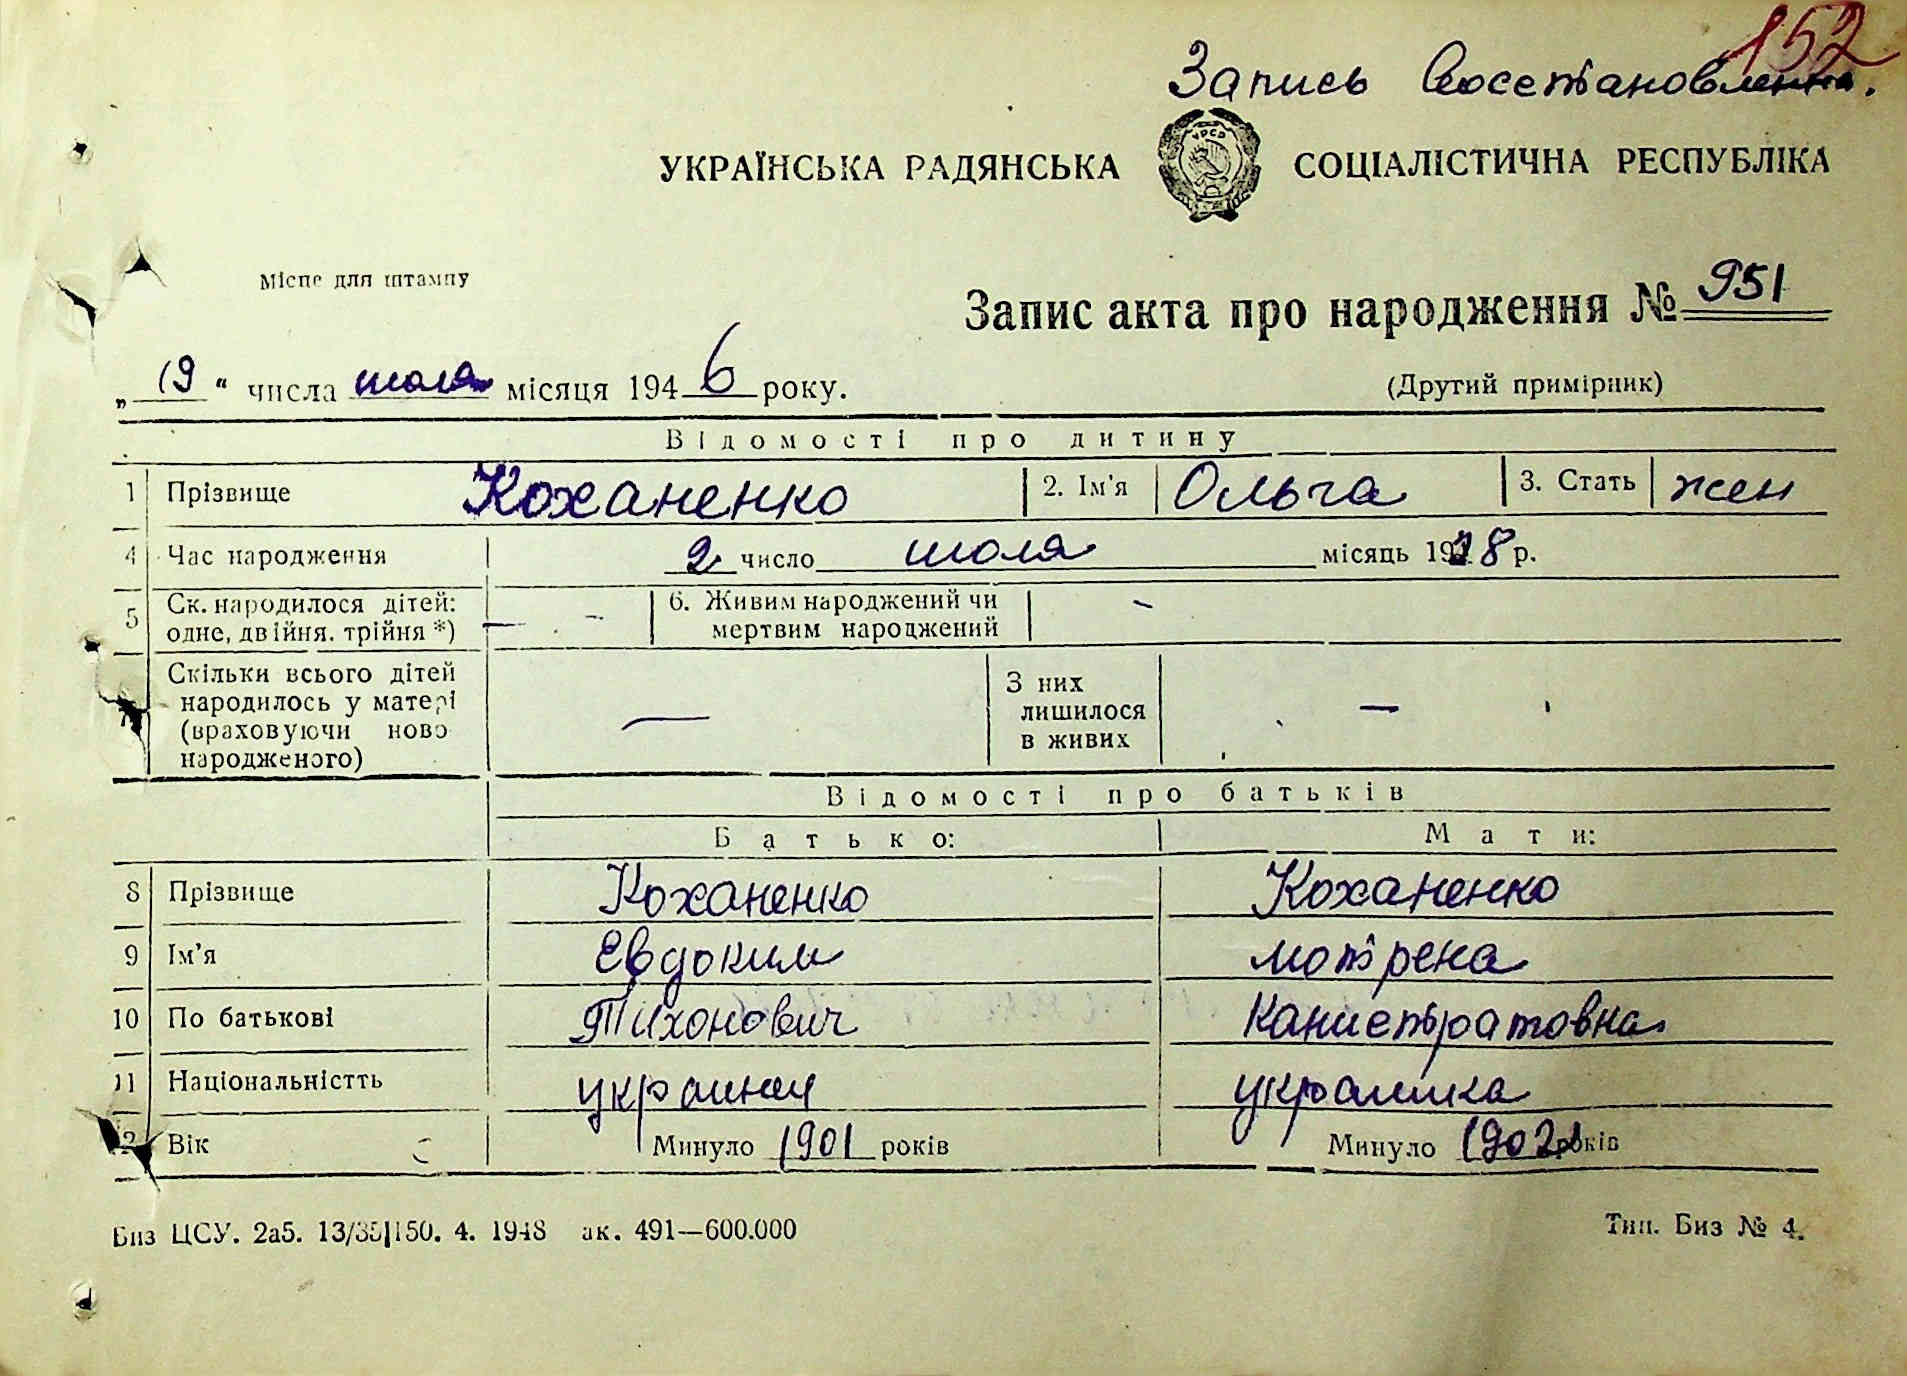 152
Запись восстановленна.
УКРАЇНСЬКА РАДЯНСЬКА СОЦІАЛІСТИЧНА РЕСПУБЛІКА
УРСР
Місце для штампу
Запис акта про народження № 951
„19“ числа июля місяця 1946 року.
(Другий примірник)
Відомості про дитину
1 Прізвище Коханенко 2. Ім'я Ольга 3. Стать жен
4 Час народження 2 число июля місяць 1928 р.
5 Ск. народилося дітей: одне, двійня, трійня *) — - 6. Живим народжений чи мертвим народжений -
Скільки всього дітей народилось у матері (враховуючи ново народженого) — З них лишилося в живих —
Відомості про батьків
Батько: Мати:
8 Прізвище Коханенко Коханенко
9 Ім'я Евдоким Мотрена
10 По батькові Тихонович Канистратовна
11 Національністть украинец украинка
12 Вік Минуло 1901 років Минуло 1902 років
Биз ЦСУ. 2а5. 13/35|150. 4. 1948 ак. 491—600.000
Тип. Биз № 4.